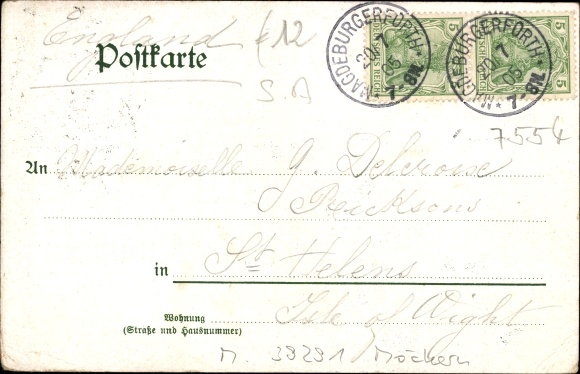 England £12
Postkarte
S.A
MAGDEBURGERFORTH
20/7
05
7-8N.
5 DEUTSCHES REICH 5
MAGDEBURGERFORTH
20/7
05
7-8N.
7554
An Mademoiselle G. Delcroise
Ricksons
in St Helens
Wohnung
(Straße und Hausnummer)
Isle of Wight
M. 39291 Möckern